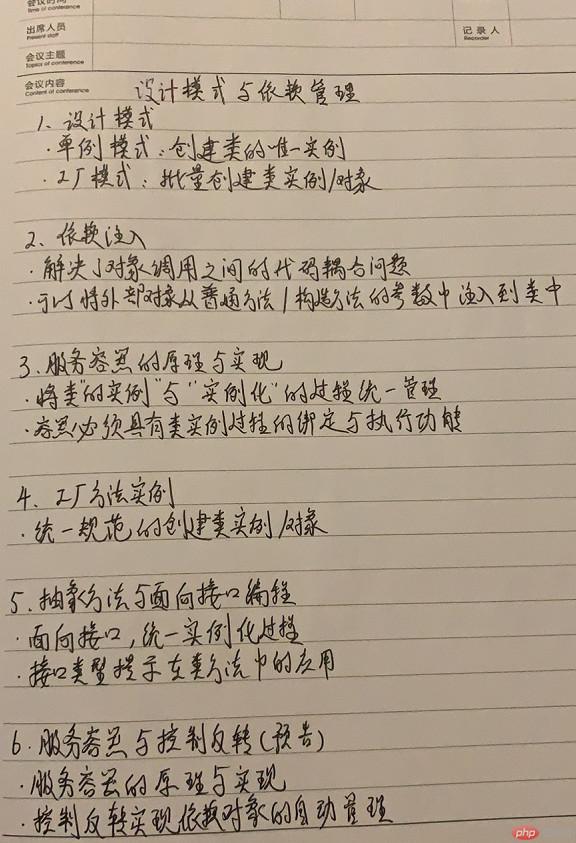 会议时间
Time of conference
出席人员
Present staff
记录人
Recorder
会议主题
Topics of conference
会议内容
Content of conference
设计模式与依赖管理
1、设计模式
·单例模式：创建类的唯一实例
·工厂模式：批量创建类实例/对象
2、依赖注入
·解决了对象调用之间的代码耦合问题
·可以将外部对象从普通方法/构造方法的参数中注入到类中
3.服务容器的原理与实现
·将类"的实例"与"实例化"的过程统一管理
·容器必须具有类实例过程的绑定与执行功能
4、工厂方法实例
·统一规范的创建类实例/对象
5.抽象方法与面向接口编程
·面向接口,统一实例化过程
·接口类型提示在类方法中的应用
6.服务容器与控制反转(预告)
·服务容器的原理与实现
·控制反转实现依赖对象的自动管理
php